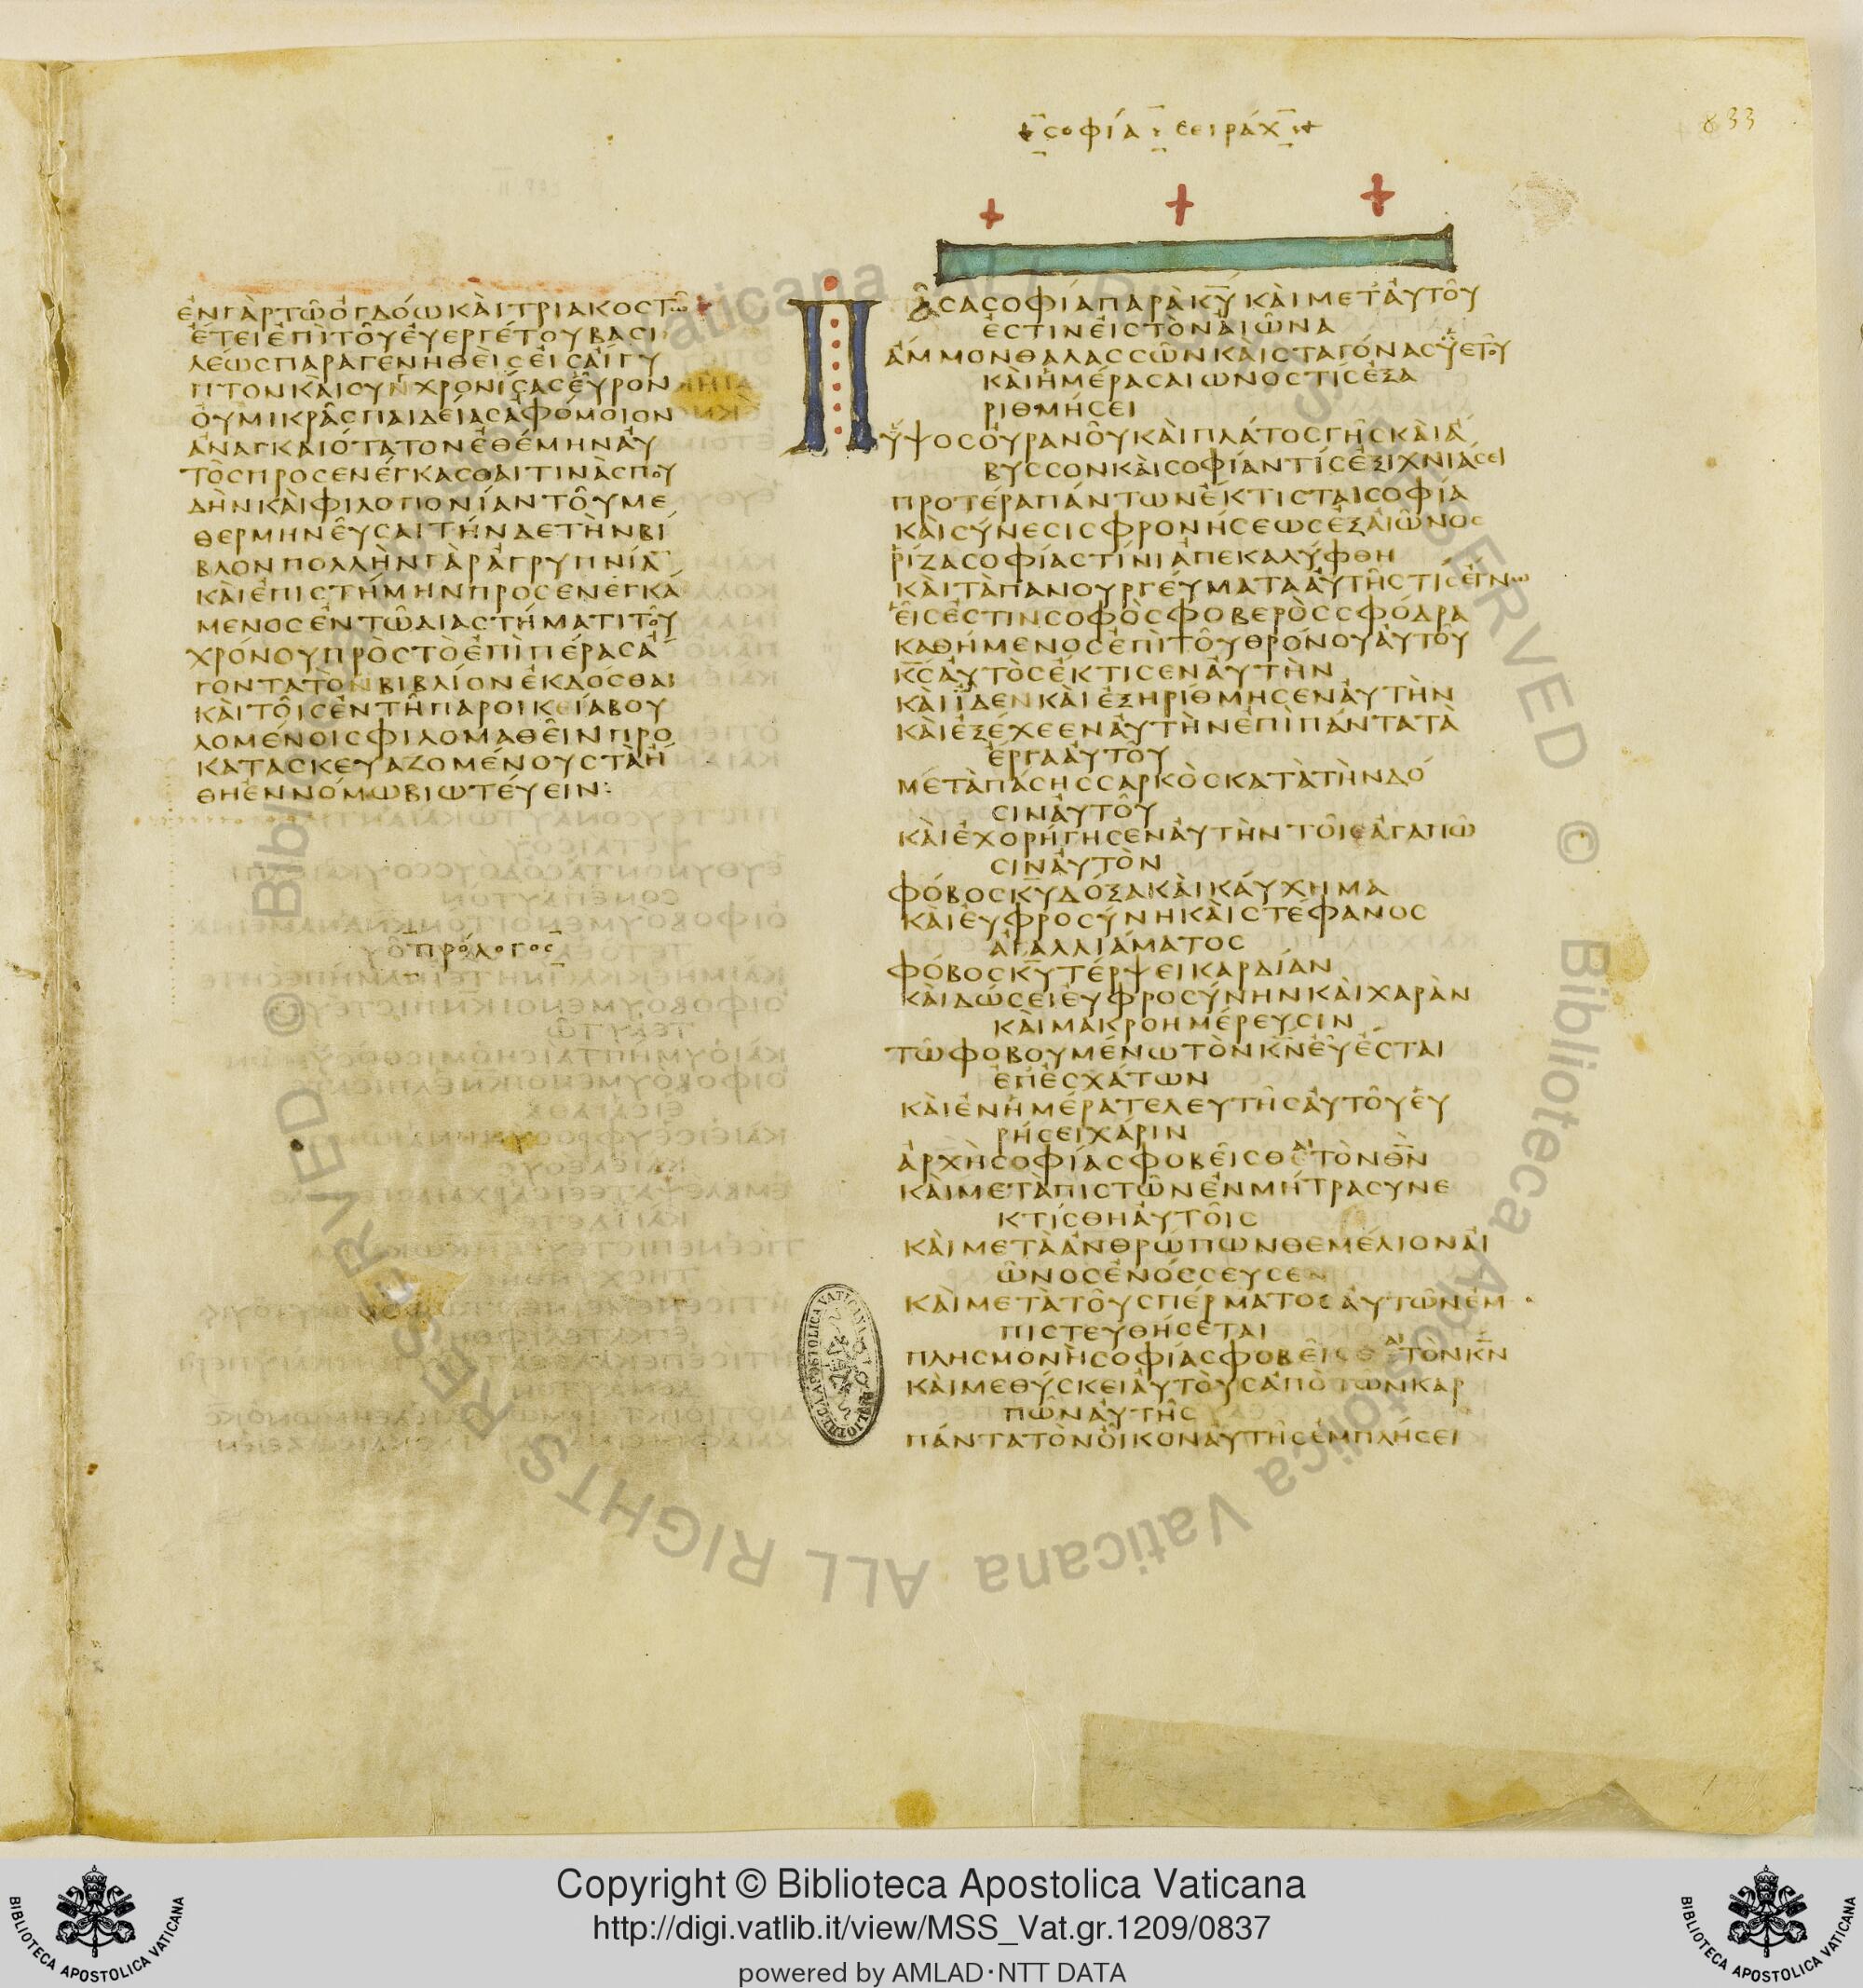 σοφία σειράχ
833
ἐν γὰρ τῶ ὀγδόω καὶ τριακοστῶ
ἔτει ἐπὶ τοῦ εὐεργέτου βασι
λέως παραγενηθεὶς εἰς αἴγυ
πτον καὶ συνχρονίσας εὗρον
οὐ μικρᾶς παιδείας ἀφόμοιον
ἀναγκαιότατον ἐθέμην αὐ
τὸς προσενέγκασθαι τινὰ σπου
δὴν καὶ φιλοπονίαν τοῦ με
θερμηνεῦσαι τήνδε τὴν βί
βλον πολλὴν γὰρ ἀγρυπνία
καὶ ἐπιστήμην προσενεγκά
μενος ἐν τῶ διαστήματι τοῦ
χρόνου πρὸς τὸ ἐπὶ πέρας ἄ
γοντα τὸ βιβλίον ἐκδόσθαι
καὶ τοῖς ἐν τῆ παροικεία βου
λομένοις φιλομαθεῖν προ
κατασκευαζομένους τὰ ἤ
θη ἐννόμω βιωτέυειν:
πρόλογος
Πᾶσα σοφία παρὰ κυ καὶ μετ αὐτοῦ
ἐστιν εἰς τὸν αἰῶνα
ἄμμον θαλασσῶν καὶ σταγόνας ὑετοῦ
καὶ ἡμέρας αιωνος τίς ἐξα
ριθμήσει
ὕψος οὐρανοῦ καὶ πλάτος γῆς καὶ ἄ
βυσσον καὶ σοφίαν τίς ἐξιχνιάσει
προτέρα πάντων ἔκτισται σοφία
καὶ σύνεσις φρονήσεως ἐξ αἰῶνος
ῥίζα σοφίας τίνι ἀπεκαλύφθη
καὶ τὰ πανουργεύματα αὐτῆς τίς ἔγνω
εἷς ἐστιν σοφὸς φοβερὸς σφόδρα
καθήμενος ἐπὶ τοῦ θρόνου αὐτοῦ
κς αὐτὸς ἔκτισεν αὐτὴν
καὶ ἴδεν καὶ ἐξηρίθμησεν αὐτὴν
καὶ ἐξέχεεν αὐτὴν ἐπὶ πάντα τὰ
ἔργα αὐτοῦ
μετὰ πάσης σαρκὸς κατὰ τὴν δό
σιν αὐτοῦ
καὶ ἐχορήγησεν αὐτὴν τοῖς ἀγαπῶ
σιν αὐτὸν
φόβος κυ δόξα καὶ καύχημα
καὶ εὐφροσύνη καὶ στέφανος
ἀγαλλιάματος
φόβος κυ τέρψει καρδίαν
καὶ δώσει εὐφροσύνην καὶ χαρὰν
καὶ μακροημέρευσιν
τῶ φοβουμένω τὸν κν εὖ ἔσται
ἐπ ἐσχάτων
καὶ ἐν ἡμέρα τελευτῆς αὐτοῦ εὑ
ρήσει χάριν
ἀρχὴ σοφίας φοβεῖσθαι τὸν θν
καὶ μετα πιστῶν ἐν μήτρα συνε
κτίσθη αὐτοῖς
καὶ μετὰ ἀνθρώπων θεμέλιον αἰ
ῶνος ἐνόσσευσεν
καὶ μετὰ τοῦ σπέρματος αὐτῶν ἐμ
πιστευθήσεται
πλησμονὴ σοφίας φοβεῖσθαι τὸν κν
καὶ μεθύσκει αὐτοὺς ἀπὸ τῶν καρ
πῶν αὐτῆς
πάντα τὸν οἶκον αὐτῆς ἐμπλήσει
BIBLIOTHECA APOSTOLICA VATICANA
© Biblioteca Apostolica Vaticana ALL RIGHTS RESERVED
BIBLIOTECA APOSTOLICA VATICANA
Copyright © Biblioteca Apostolica Vaticana
http://digi.vatlib.it/view/MSS_Vat.gr.1209/0837
powered by AMLAD·NTT DATA
BIBLIOTECA APOSTOLICA VATICANA